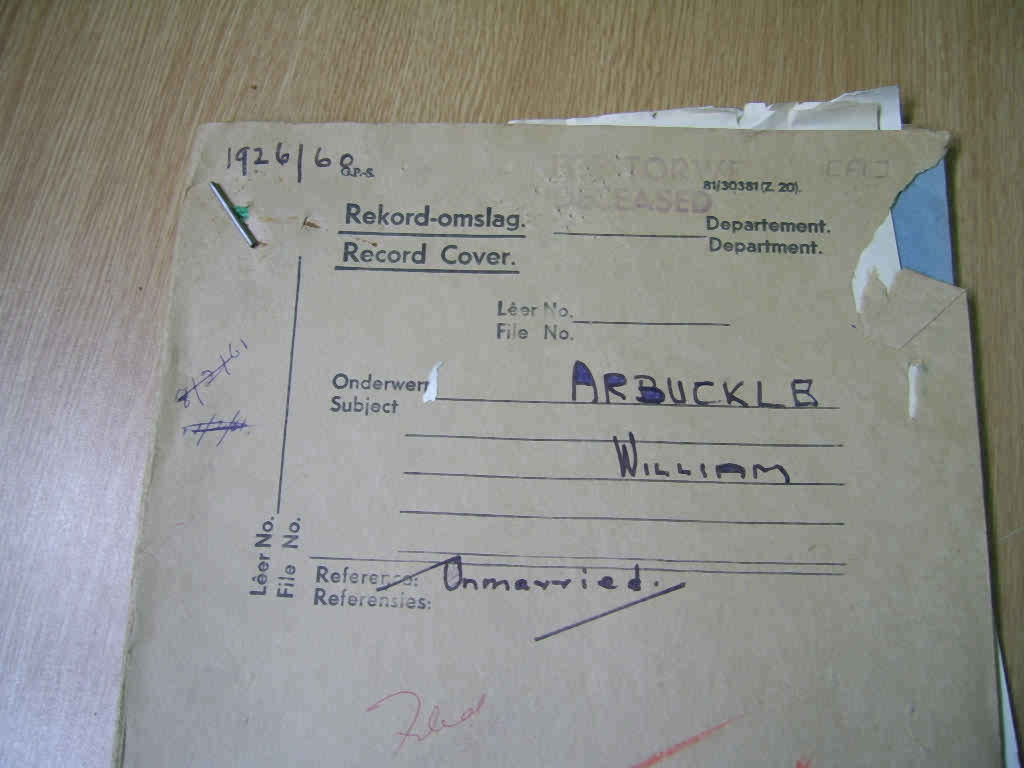 1926/60
81/30381 (Z. 20).
DECEASED
Rekord-omslag.
Record Cover.
Departement.
Department.
Lêer No.
File No.
8/2/61
Onderwerp
Subject
ARBUCKLE
WILLIAM
Lêer No.
File No.
Reference: Unmarried.
Referensies:
Filed